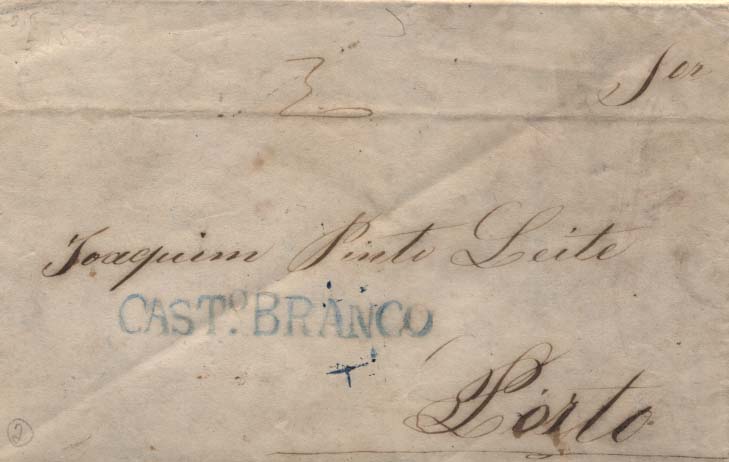 Snr
Joaquim Pinto Leite
CASTº. BRANCO
Porto
2